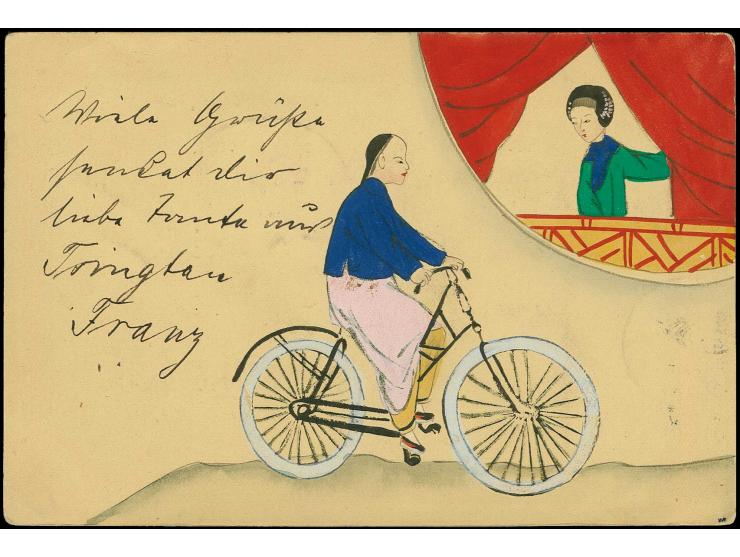 Viele Grüße
sendet dir
liebe Tante aus
Tsingtau
Franz